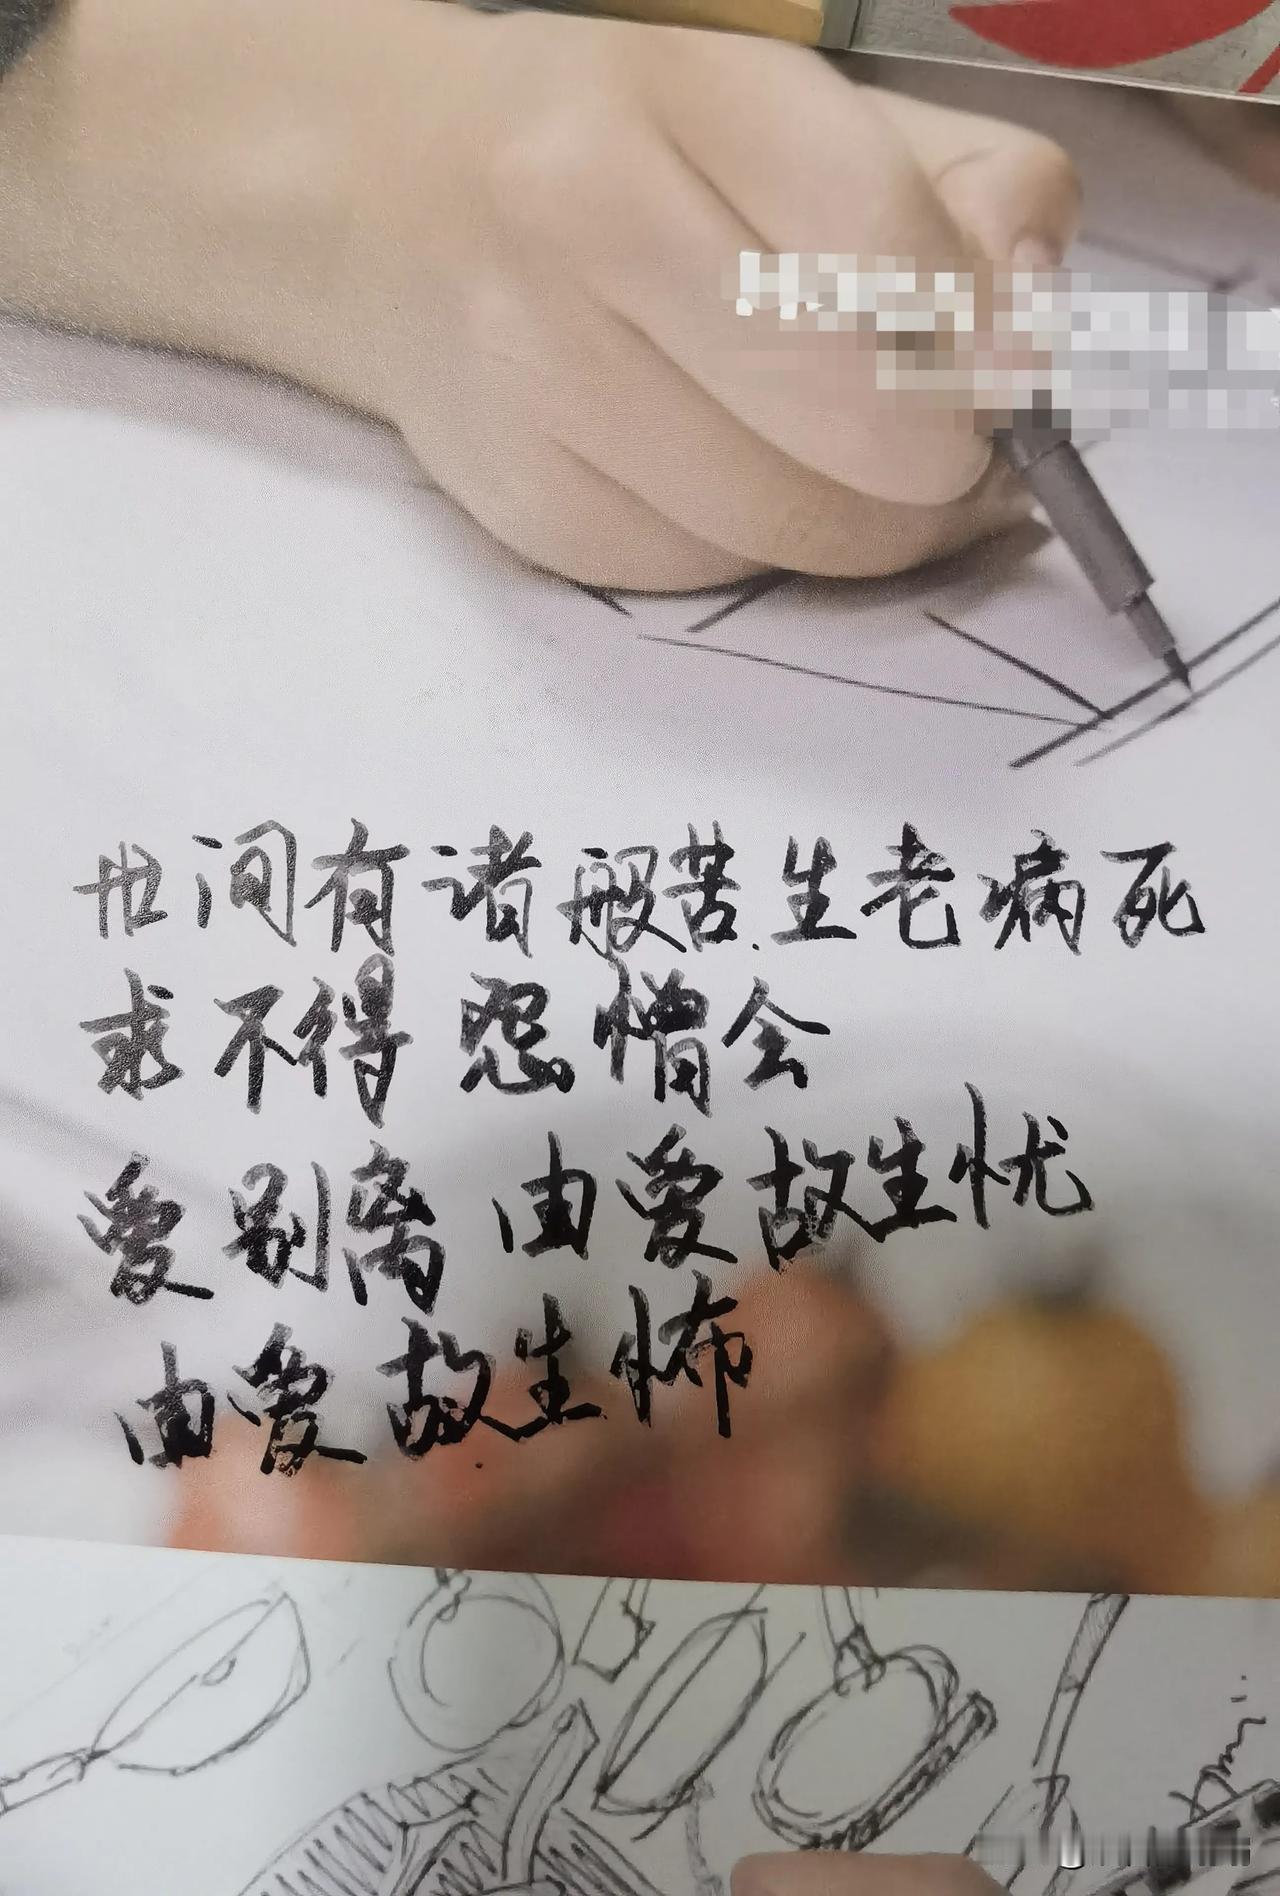 世间有诸般苦.生老病死
求不得 怨憎会
爱别离 由爱故生忧
由爱故生怖